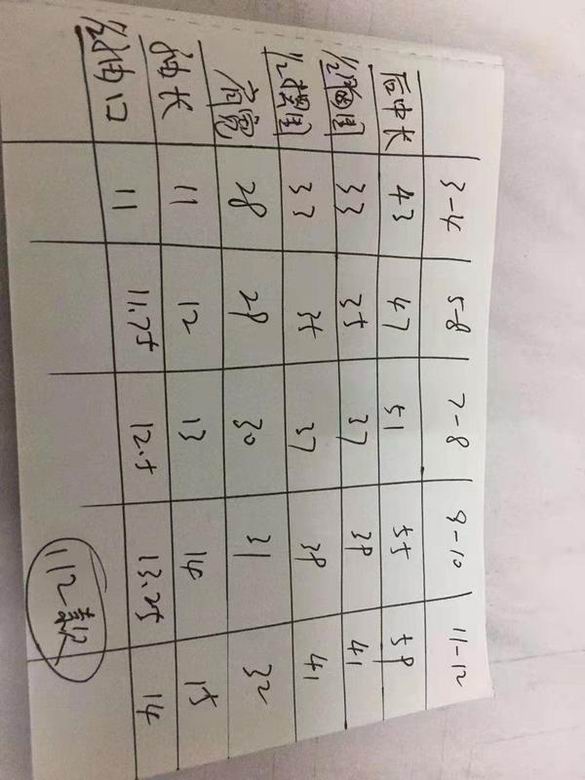 3-4 5-8 7-8 9-10 11-12
后中长 43 47 51 55 59
1/2胸围 33 35 37 39 41
1/2摆围 33 35 37 39 41
肩宽 28 29 30 31 32
袖长 11 12 13 14 15
1/2袖口 11 11.75 12.5 13.25 14
112款